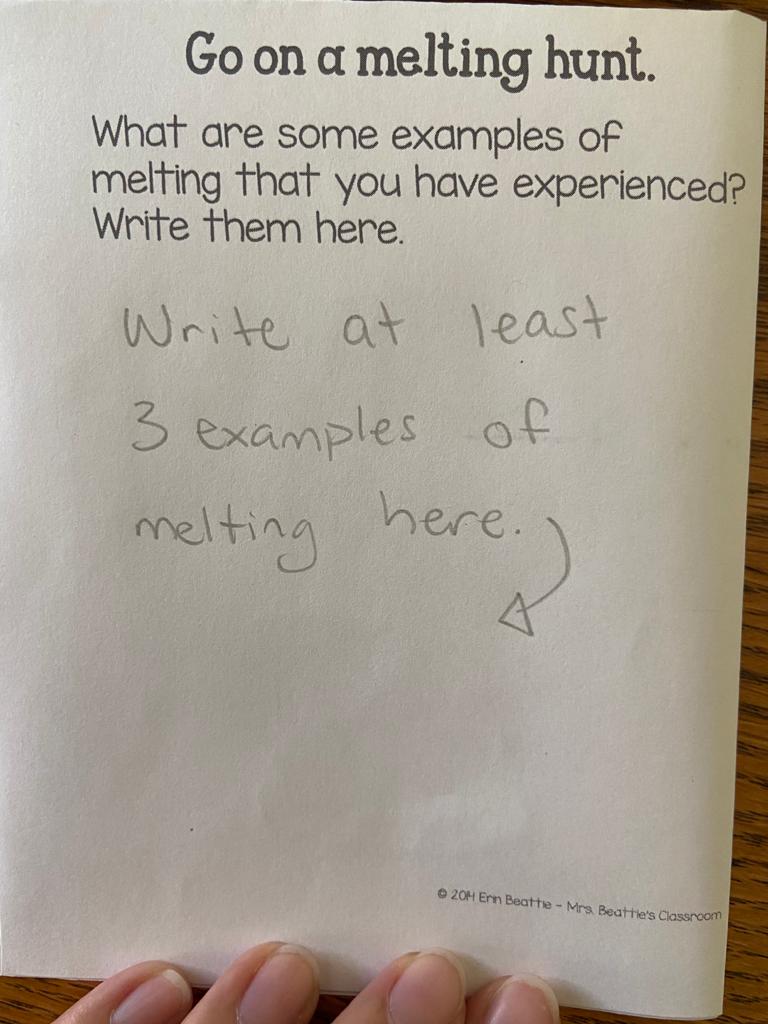 Go on a melting hunt.
What are some examples of
melting that you have experienced?
Write them here.
Write at least
3 examples of
melting here.
© 2014 Erin Beattie - Mrs. Beattie's Classroom